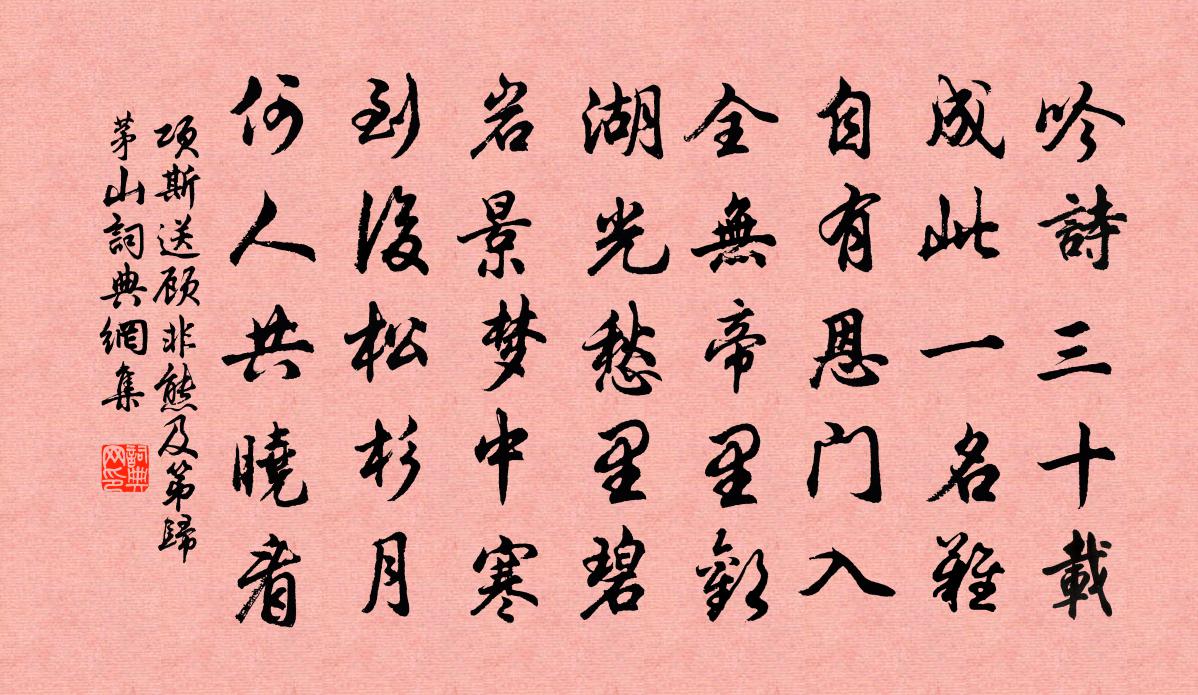 吟詩三十載
成此一名難
自有恩门入
全無帝里歡
湖光愁里碧
岩景梦中寒
到後松杉月
何人共曉看
项斯送顾非熊及第歸
茅山詞典網集
詞典网印